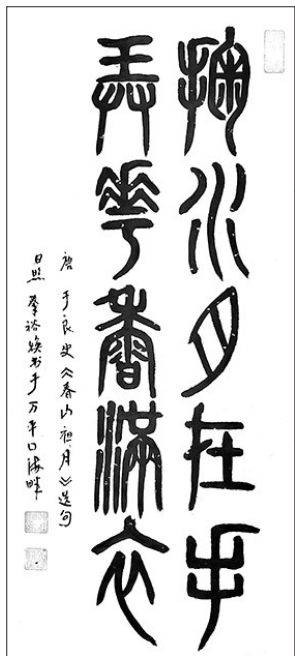 掬水月在手
弄花香滿衣
唐 于良史《春山夜月》选句
日照 裕焕书于万平口海畔